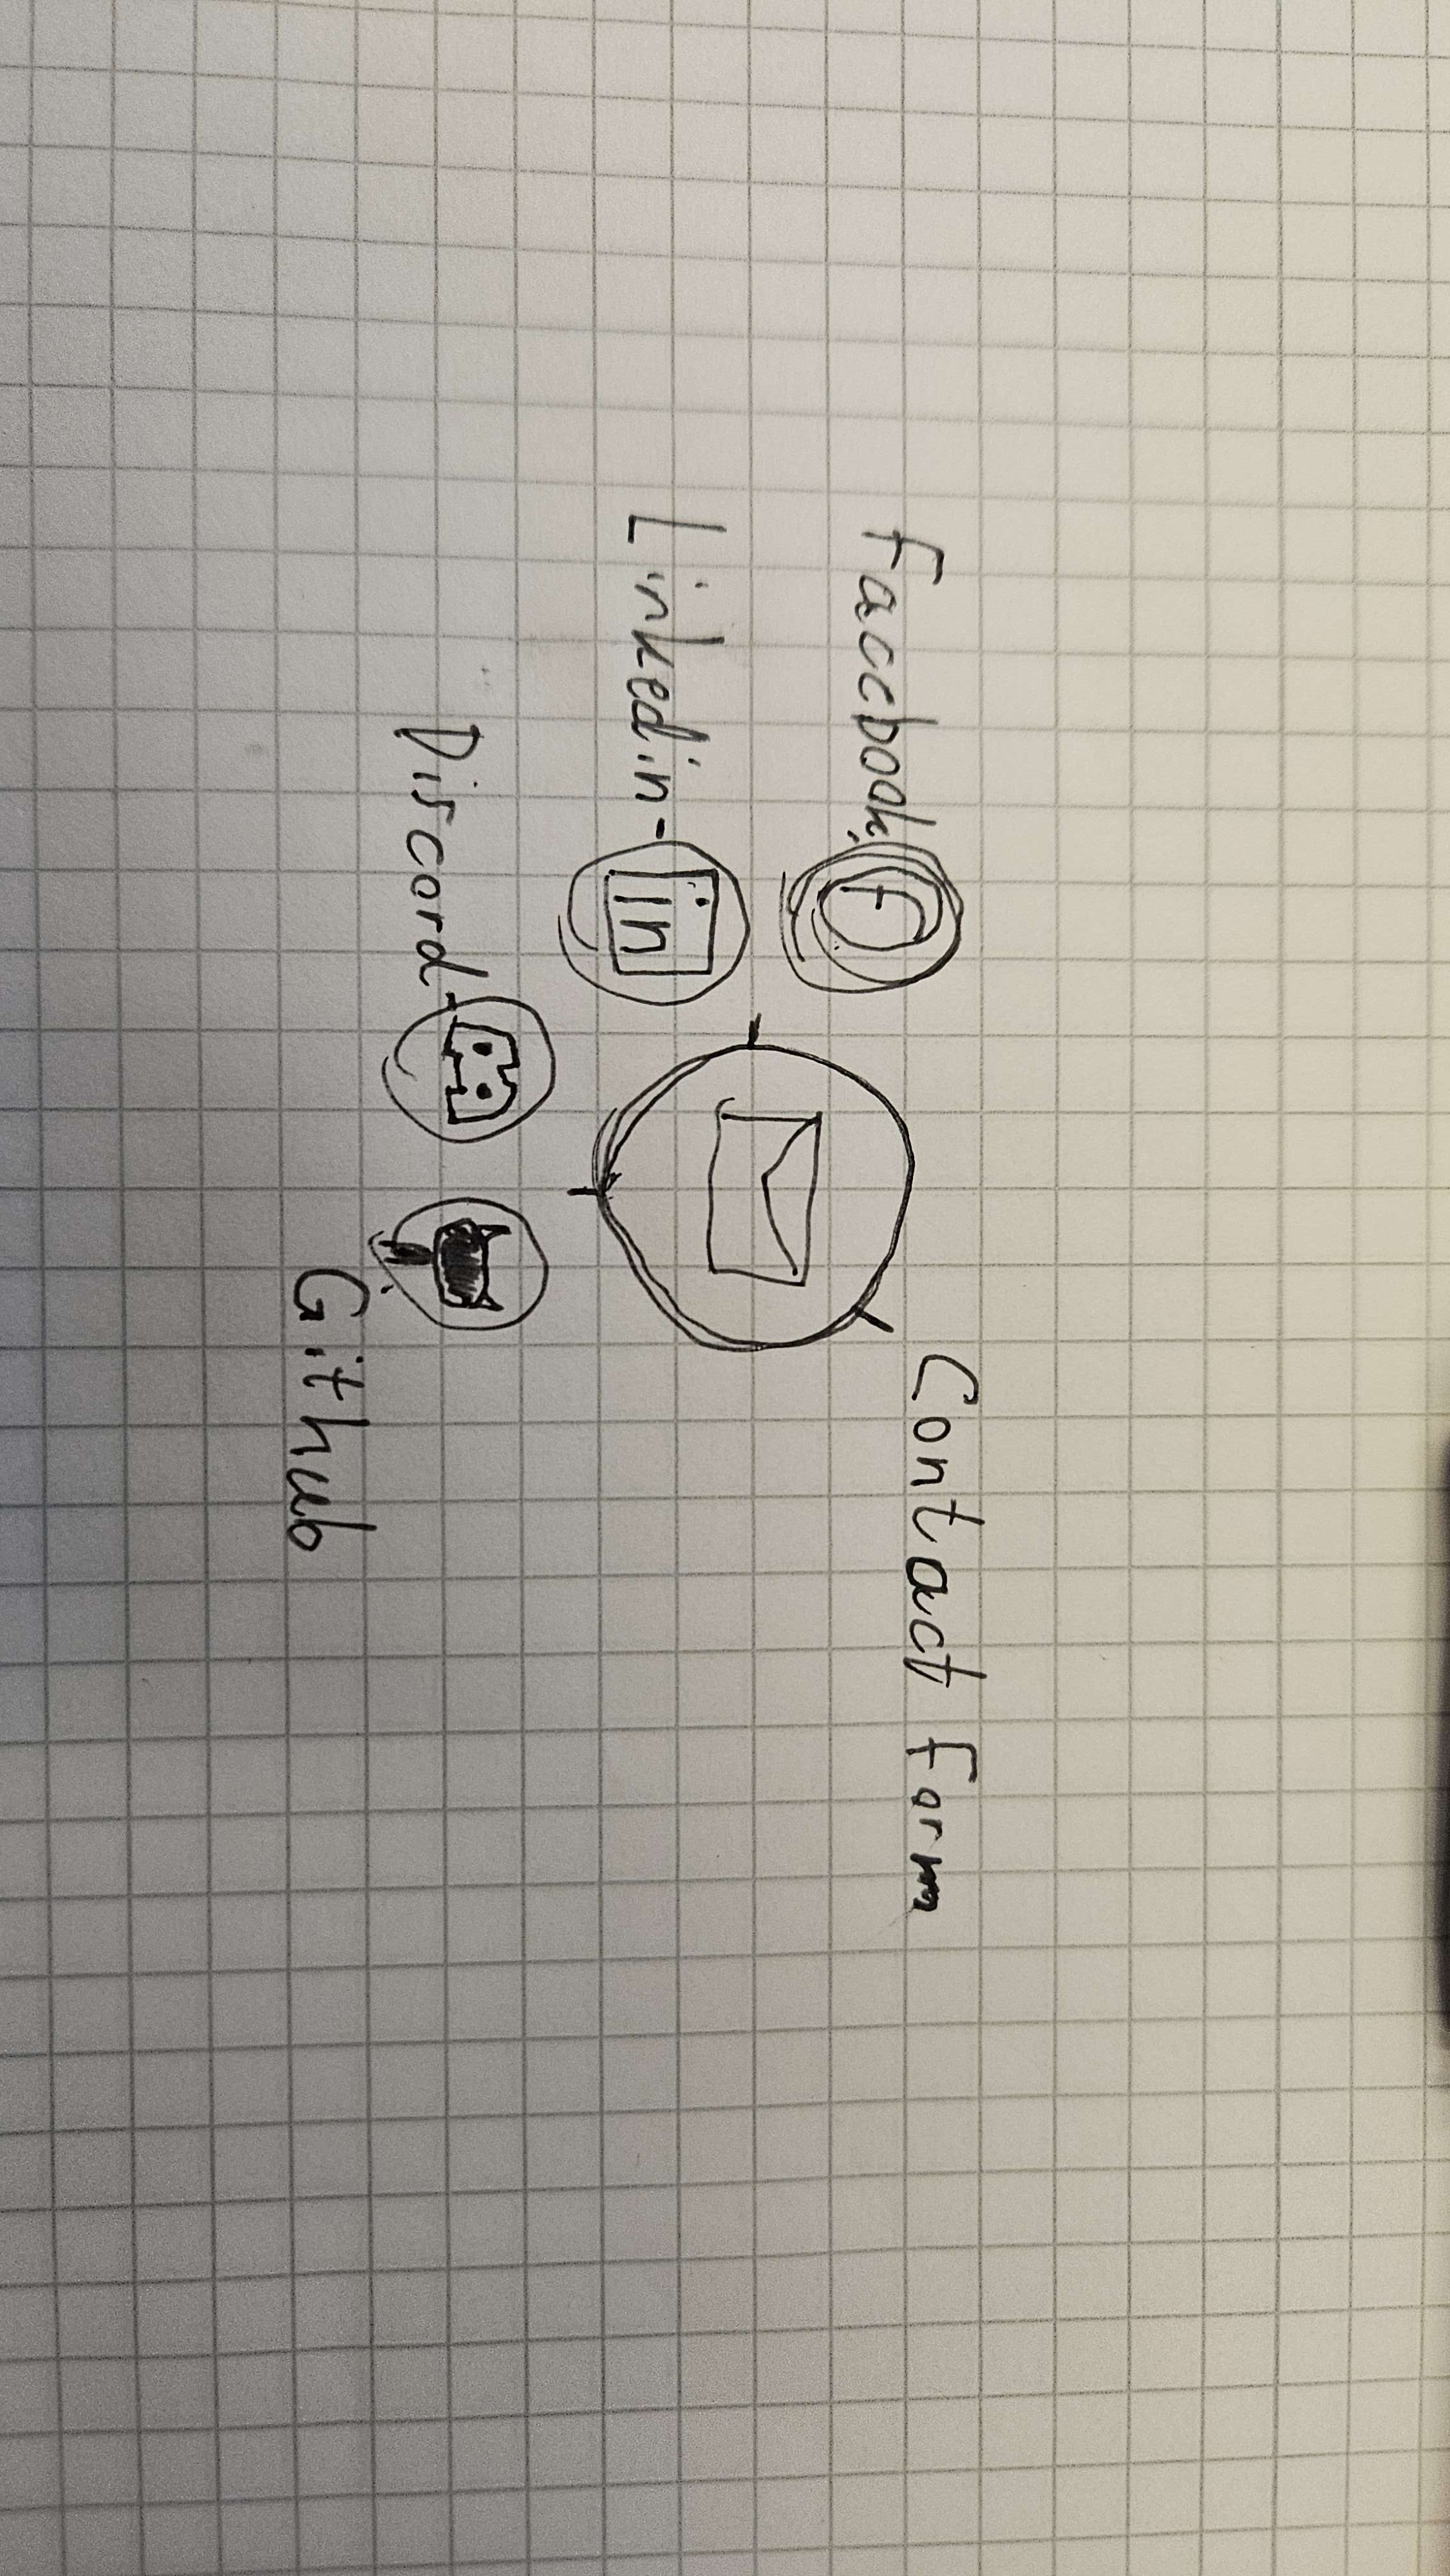 Contact Form
Faccbook
f
Linkedin
in
Discord
Github